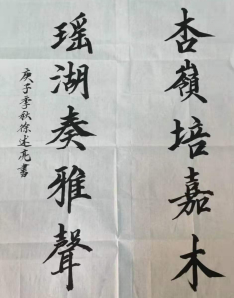 杏嶺培嘉木
瑶湖奏雅聲
庚子季秋徐述亮書